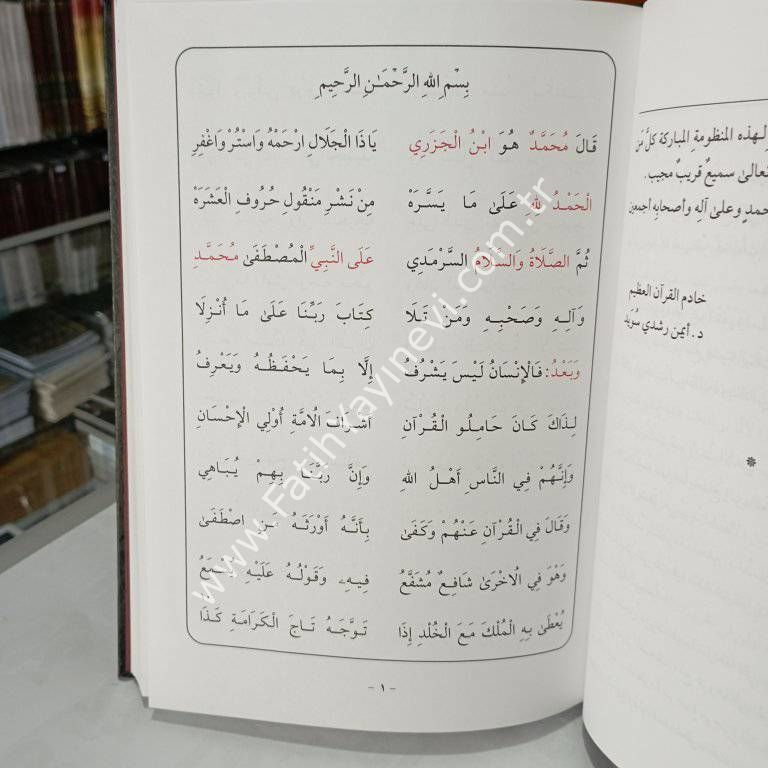 بِسْمِ اللهِ الرَّحْمَـٰنِ الرَّحِيمِ
قَالَ مُحَمَّدٌ هُوَ ابْنُ الْجَزَرِي يَاذَا الْجَلَالِ ارْحَمْهُ وَاسْتُرْ وَاغْفِرِ
الْحَمْدُ لِلهِ عَلَىٰ مَا يَسَّرَهْ مِنْ نَشْرِ مَنْقُولِ حُرُوفِ الْعَشَرَهْ
ثُمَّ الصَّلَاةُ وَالسَّلَامُ السَّرْمَدِي عَلَى النَّبِيِّ الْمُصْطَفَىٰ مُحَمَّدِ
وَآلِهِ وَصَحْبِهِ وَمَنْ تَلَا كِتَابَ رَبِّنَا عَلَىٰ مَا أُنْزِلَا
وَبَعْدُ: فَالْإِنْسَانُ لَيْسَ يَشْرُفُ إِلَّا بِمَا يَحْفَظُهُ وَيَعْرِفُ
لِذَاكَ كَانَ حَامِلُو الْقُرْآنِ أَشْرَافَ الْامَّةِ أُولِي الْإِحْسَانِ
وَإِنَّهُمْ فِي النَّاسِ أَهْلُ اللهِ وَإِنَّ رَبَّنَا بِهِمْ يُبَاهِي
وَقَالَ فِي الْقُرْآنِ عَنْهُمْ وَكَفَىٰ بِأَنَّهُ أَوْرَثَهُ مَنِ اصْطَفَىٰ
وَهْوَ فِي الْاخْرَىٰ شَافِعٌ مُشَفَّعُ فِيهِ وَقَوْلُهُ عَلَيْهِ يُسْمَعُ
يُعْطَىٰ بِهِ الْمُلْكَ مَعَ الْخُلْدِ إِذَا تَوَّجَهُ تَاجَ الْكَرَامَةِ كَذَا
- ١ -
لهذه المنظومة المباركة كلَّ مَن
تعالىٰ سميعٌ قريبٌ مجيب.
وعلىٰ آله وأصحابه أجمعين
خادم القرآن العظيم
د. أيمن رشدي سُوَيد
*
www.FatihYayinevi.com.tr